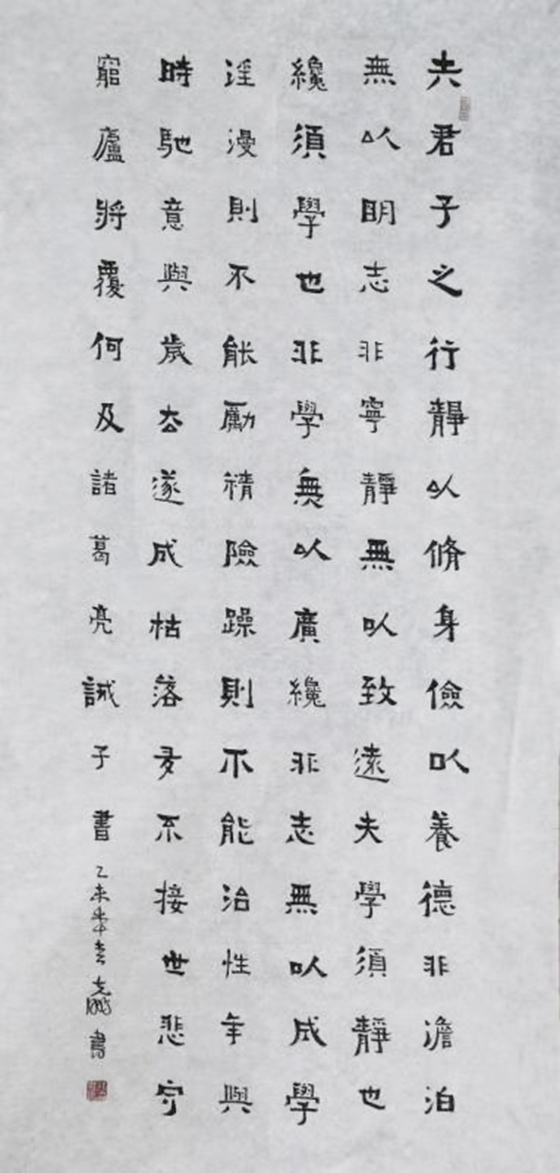 夫君子之行靜以脩身儉以養德非澹泊
無以明志非寧靜無以致遠夫學須靜也
纔須學也非學無以廣纔非志無以成學
淫漫則不能勵精險躁則不能治性年與
時馳意與歲去遂成枯落多不接世悲守
窮廬將覆何及諸葛亮誡子書乙未年書